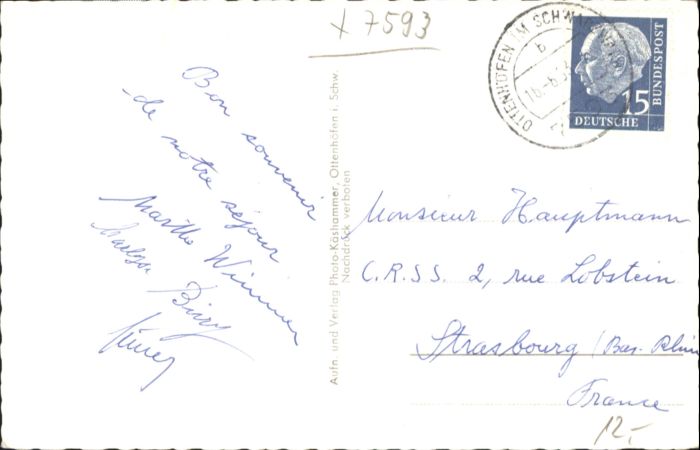 + 7593
OTTENHÖFEN IM SCHWARZWALD
b
DEUTSCHE
BUNDESPOST
15
Bon souvenir
de notre séjour
Martha Wimmer
Aufn. und Verlag Photo-Käshammer, Ottenhöfen i. Schw.
Nachdruck verboten
Monsieur Hauptmann
C.R.S.S. 2, rue Lobstein
Strasbourg (Bas-Rhin
France
12,-